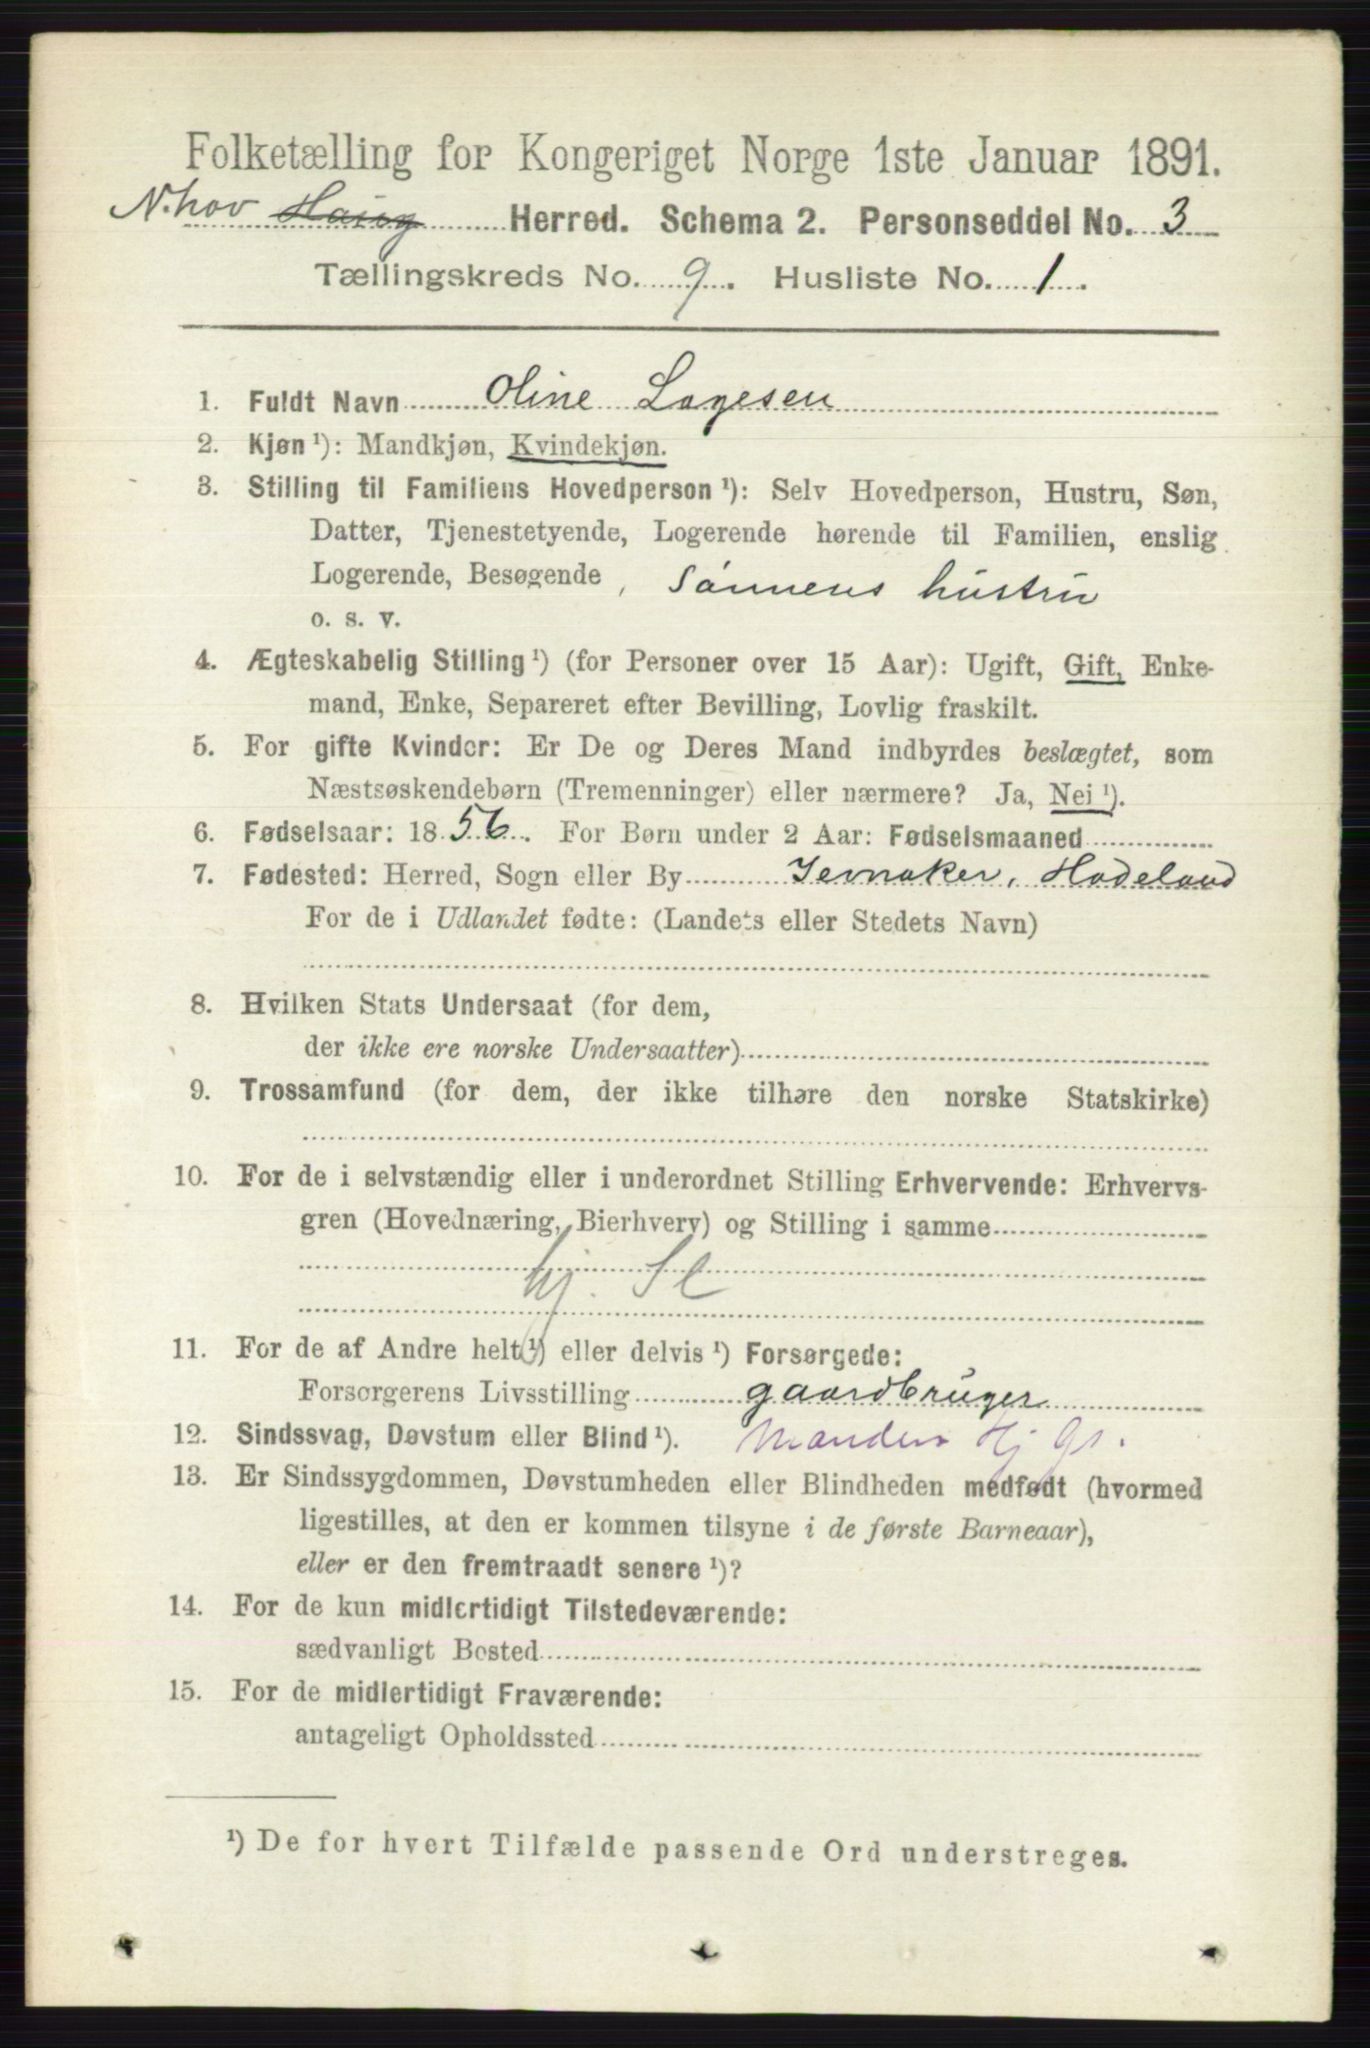 Folketælling for Kongeriget Norge 1ste Januar 1891.
N.hov Haug Herred. Schema 2. Personseddel No. 3
Tællingskreds No. 9. Husliste No. 1.
1. Fuldt Navn Oline Lagesen
2. Kjøn ¹): Mandkjøn, Kvindekjøn.
3. Stilling til Familiens Hovedperson ¹): Selv Hovedperson, Hustru, Søn,
Datter, Tjenestetyende, Logerende hørende til Familien, enslig
Logerende, Besøgende, Sønnens hustru
o. s. v.
4. Ægteskabelig Stilling ¹) (for Personer over 15 Aar): Ugift, Gift, Enke-
mand, Enke, Separeret efter Bevilling, Lovlig fraskilt.
5. For gifte Kvinder: Er De og Deres Mand indbyrdes beslægtet, som
Næstsøskendebørn (Tremenninger) eller nærmere? Ja, Nei ¹).
6. Fødselsaar: 1856. For Børn under 2 Aar: Fødselsmaaned
7. Fødested: Herred, Sogn eller By Jevnaker, Hadeland
For de i Udlandet fødte: (Landets eller Stedets Navn)
8. Hvilken Stats Undersaat (for dem,
der ikke ere norske Undersaatter)
9. Trossamfund (for dem, der ikke tilhøre den norske Statskirke)
10. For de i selvstændig eller i underordnet Stilling Erhvervende: Erhvervs-
gren (Hovednæring, Bierhverv) og Stilling i samme
hj. Sl
11. For de af Andre helt ¹) eller delvis ¹) Forsørgede:
Forsørgerens Livsstilling gaardbruger
12. Sindssvag, Døvstum eller Blind ¹). Manden Hj gs.
13. Er Sindssygdommen, Døvstumheden eller Blindheden medfødt (hvormed
ligestilles, at den er kommen tilsyne i de første Barneaar),
eller er den fremtraadt senere ¹)?
14. For de kun midlertidigt Tilstedeværende:
sædvanligt Bosted
15. For de midlertidigt Fraværende:
antageligt Opholdssted
¹) De for hvert Tilfælde passende Ord understreges.